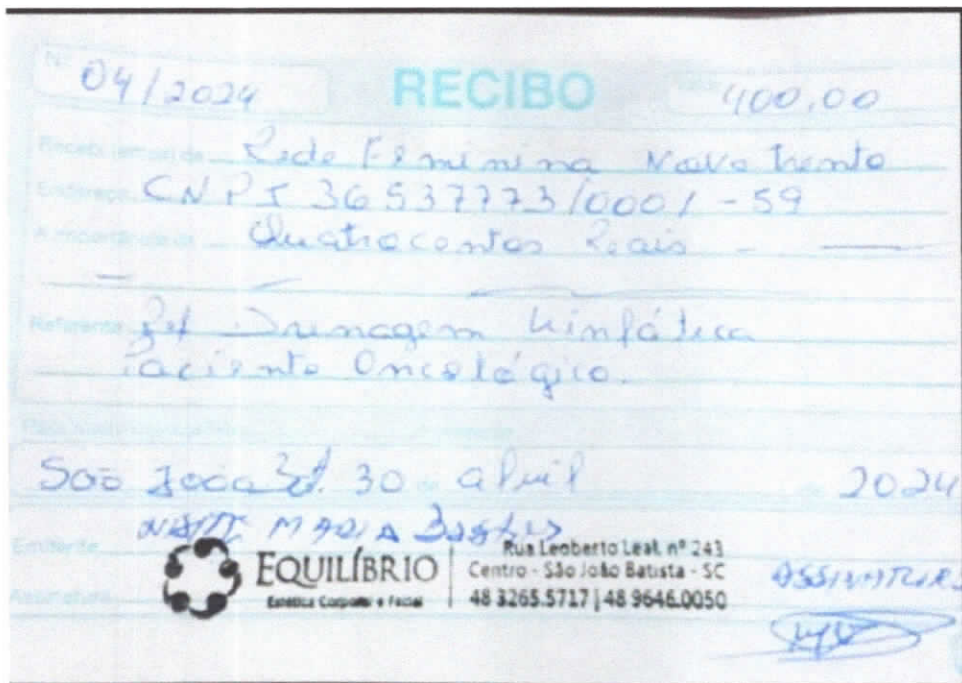 Nº 04/2024 RECIBO 400,00
Recebi (emos) de Rede Feminina Nova Trento
Endereço CNPJ 36537773/0001-59
A importância de Quatrocentos Reais
Referente Ref Drenagem Linfática
Paciente Oncológico.
São João Bt. 30 de abril de 2024
Emitente MARIA
EQUILÍBRIO
Estética Corporal e Facial
Rua Leoberto Leal, nº 243
Centro - São João Batista - SC
48 3265.5717 | 48 9646.0050
Assinatura